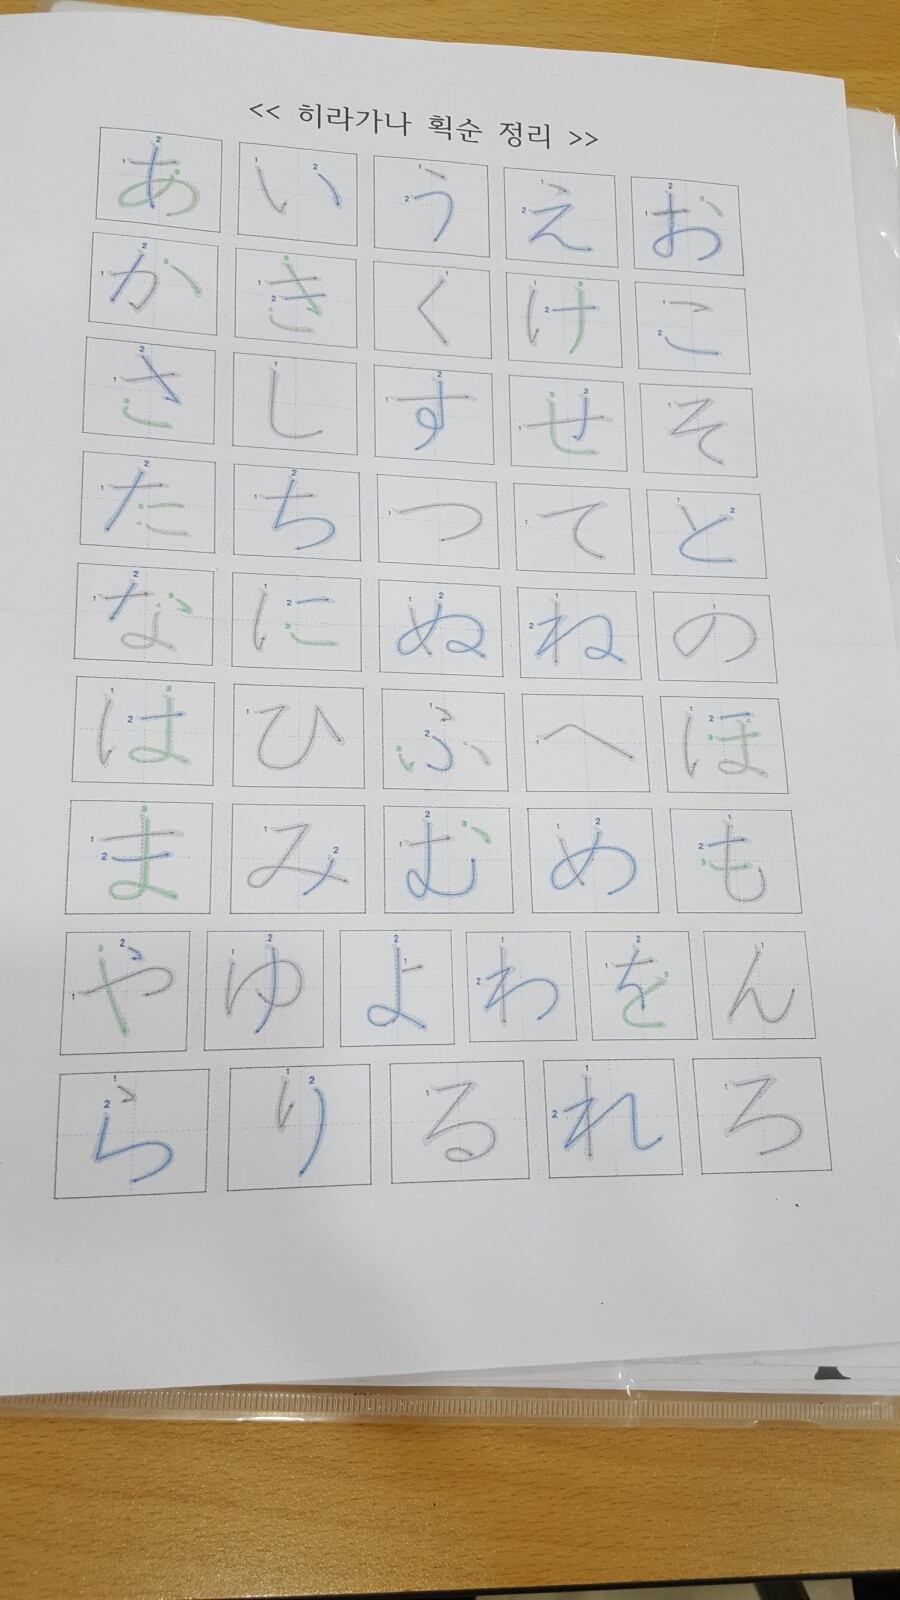 << 히라가나 획순 정리 >>
あ い う え お
か き く け こ
さ し す せ そ
た ち つ て と
な に ぬ ね の
は ひ ふ へ ほ
ま み む め も
や ゆ よ わ を ん
ら り る れ ろ